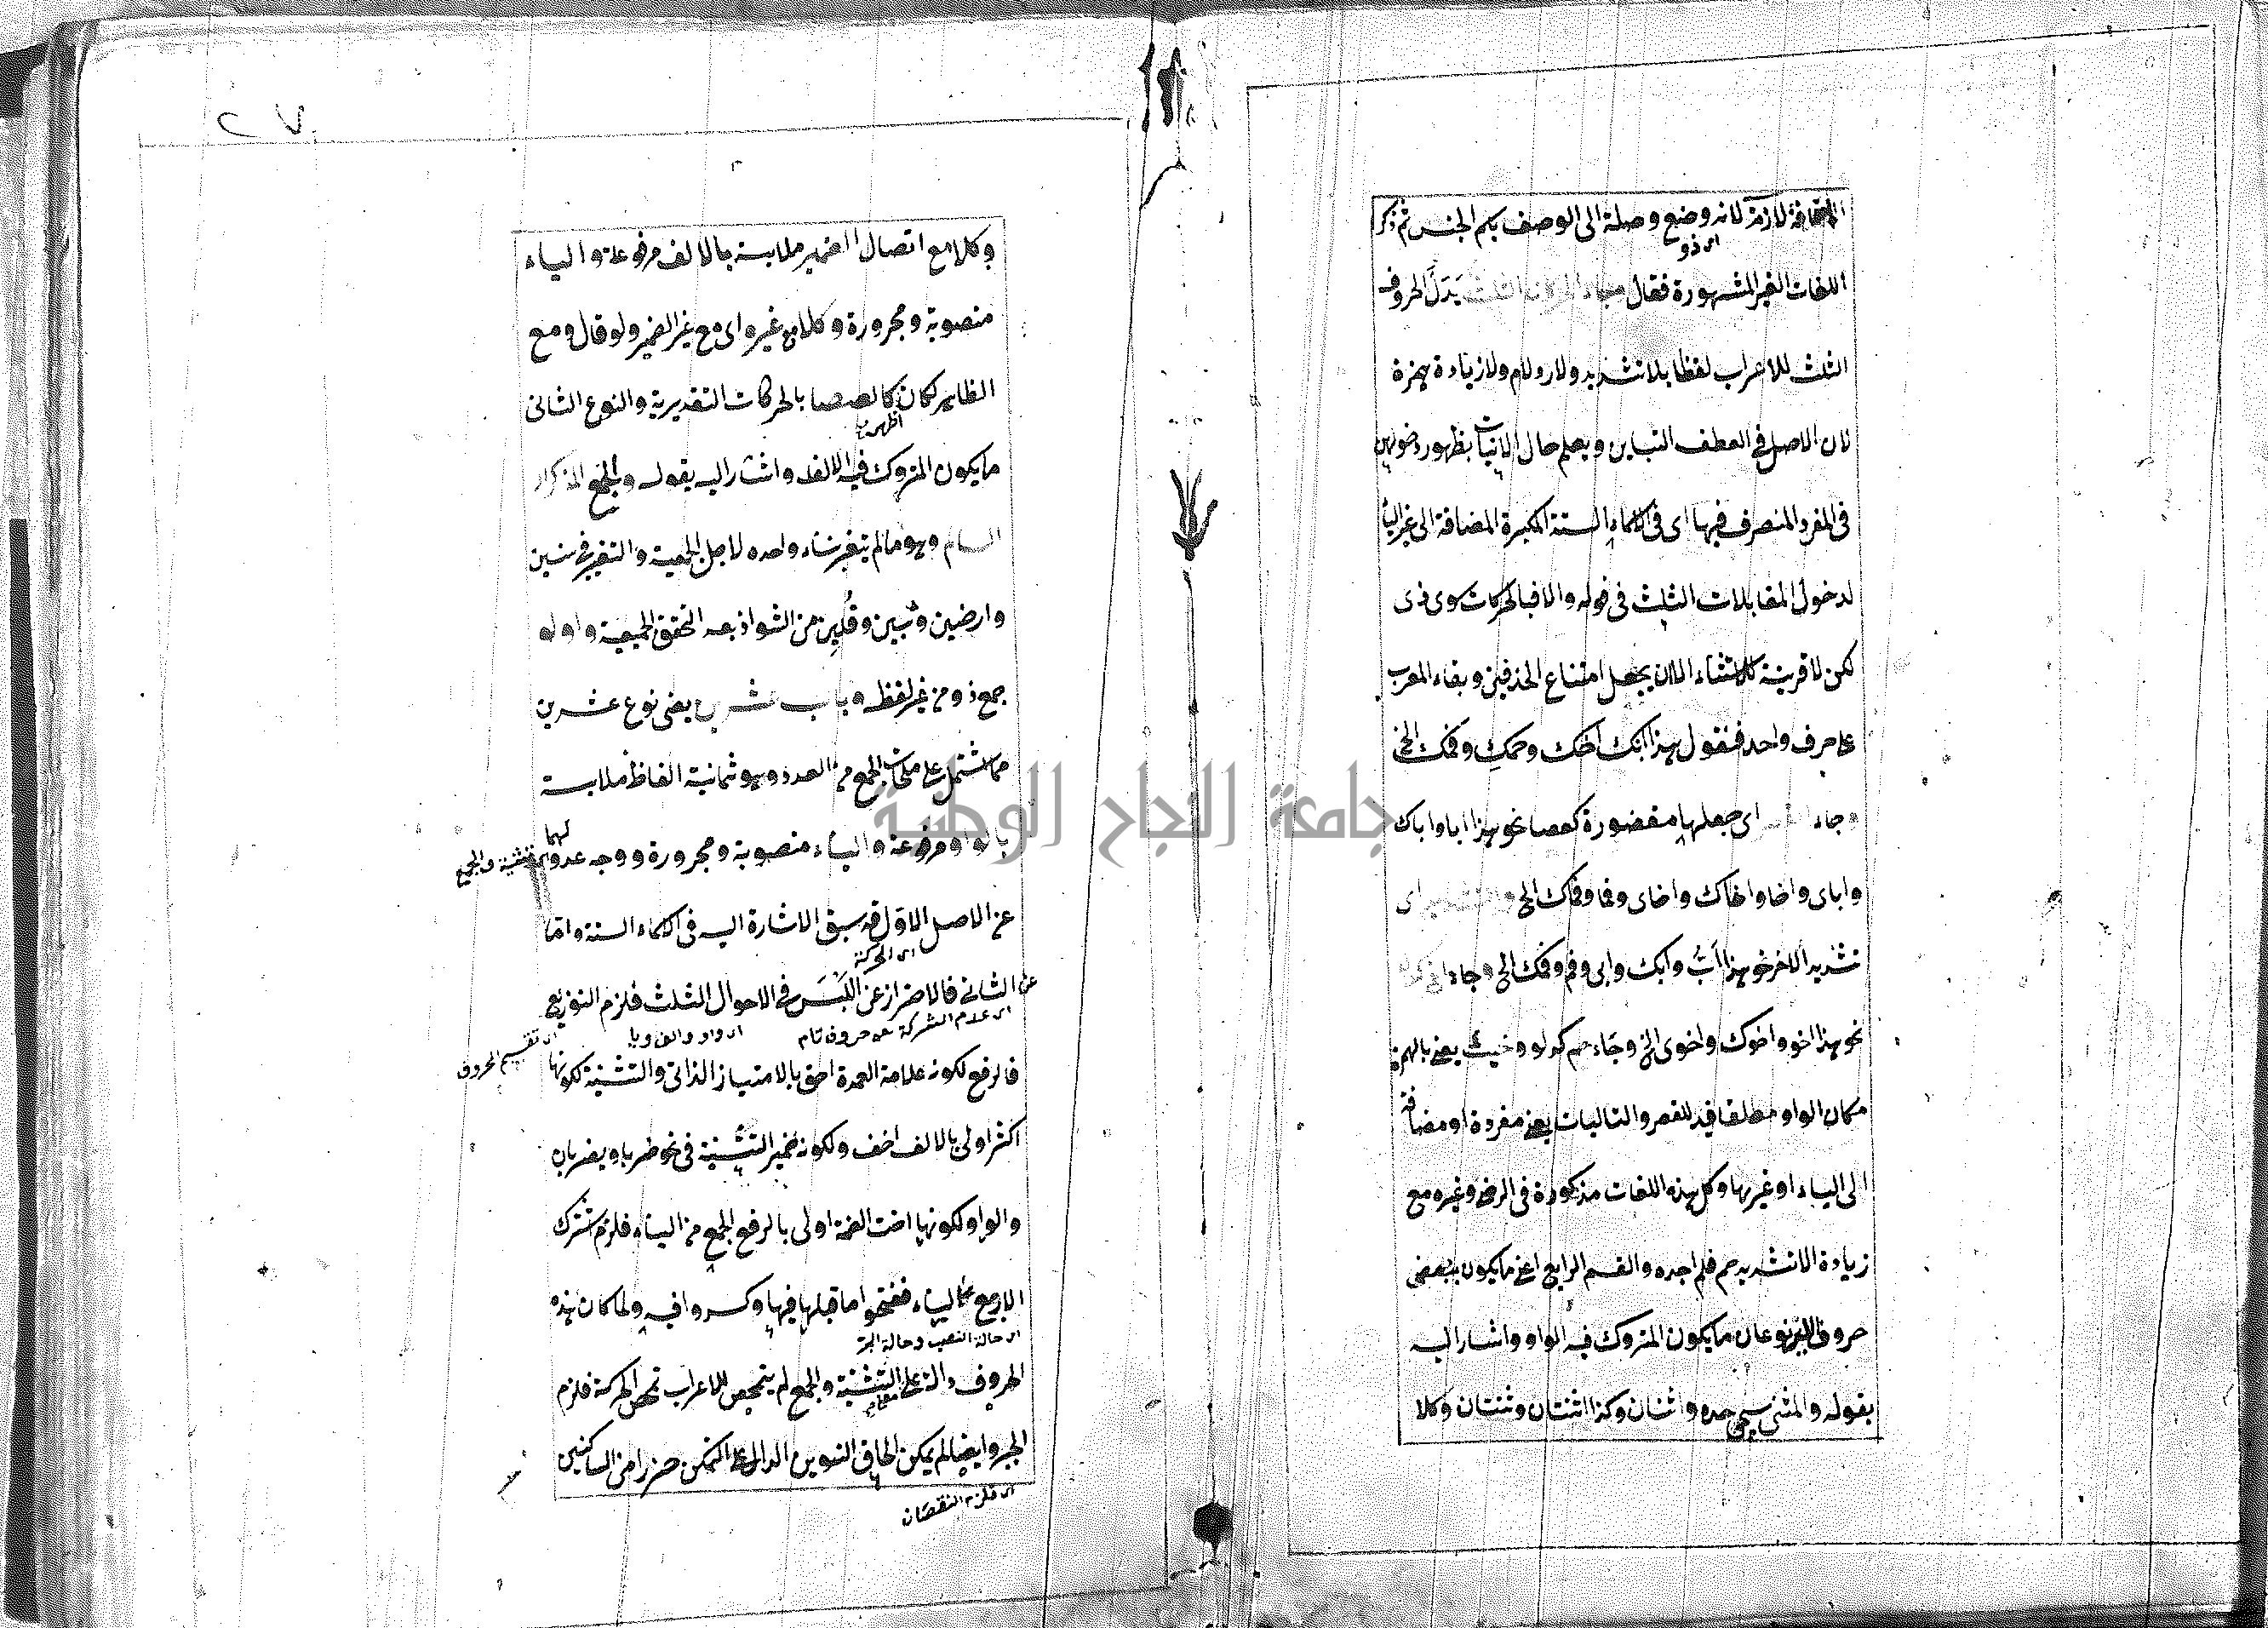 لازمة لانه وضع وصلة الى الوصف بكم الجنس ثم ذكر
اى ذو
اللغات الغير المشهورة فقال يبدل الحروف
الثلث للاعراب لفظا بلا تشديد ولا رد لام ولا زيادة همزة
لان الاصل فى العطف التباين ويعلم حال الاثبات بظهور
فى المفرد المنصرف فيها اى فى الاسماء الستة المكبرة المضافة الى غير الياء
لدخول المقابلات الثلث فى قوله والا فبالحركات سوى ذى
لكن لا قرينة للاستثناء الا ان يجعل امتناع الحذفين وبقاء المعرب
على حرف واحد فنقول هذا ابك اخك وحمك وفمك الخ
وجاء اى جعلها مقصورة كعصا نحو هذا ابا واباك
واباى واخا واخاك واخاى وفما وفماك الخ اى
تشديد الاخر نحو هذا اب وابك وابى وفم وفمك الخ وجاء
نحو هذا اخو واخوك واخوى الخ وجاء حم كدلو وخبء يعنى بالهمزة
مكان الواو مطلقا قيد للقصر والتاليات يعنى مفردة او مضافة
الى الياء او غيرها وكل هذه اللغات مذكورة فى الرضى وغيره مع
زيادة الا تشديد حم فلم اجده والقسم الرابع اعنى ما يكون ببعض
حروف نوعان ما يكون المتروك فيه الواو واشار اليه
بقوله والمثنى واثنان وكذا اثنتان وثنتان وكلا
٢٧
وكلا مع اتصال الضمير ملابسة بالالف مرفوعة والياء
منصوبة ومجرورة وكلا مع غيره اى مع غير الضمير ولو قال ومع
الظاهر لكان كالعصا بالحركات التقديرية والنوع الثانى
اظهر
ما يكون المتروك فيه الالف واشار اليه بقوله والجمع المذكر
السالم وهو ما لم يتغير بناء واحده لاجل الجمعية والتغير فى سنين
وارضين وثبين وقلين من الشواذ بعد التحقق الجمعية واولو
جمع ذو من غير لفظه وباب عشرين يعنى نوع عشرين
مما اشتمل على ملحقات الجمع من العدد وهو ثمانية الفاظ ملابسة
بالواو مرفوعة والياء منصوبة ومجرورة ووجه عدول التثنية والجمع
عن الاصل الاول قد سبق الاشارة اليه فى الاسماء الستة واما
اى الحركة
عن الثانى فالاحتراز عن اللبس فى الاحوال الثلث فلزم التوزيع
اى عدم الشركة عن حروف تام اى واو والف ويا اى تقسيم الحروف
فالرفع لكونه علامة العمدة احق بالامتياز الذاتى والتثنية لكونها
اكثر اولى بالالف اخف ولكونه ضمير التثنية فى نحو ضربا ويضربان
والواو لكونها اخت الضمة اولى بالرفع الجمع من الياء فلزم شترك
الاربع الياء ففتحوا ما قبلها فيها وكسروا فيه ولما كان هذه
اى حالة النصب وحالة الجر
الحروف دالة على التثنية والجمع لم يتمحض للاعراب تمحض الحركة فلزم
الجبر وايضا لم يمكن الحاق التنوين الدال على التمكن حذرا من الساكنين
اى فلزم النقصان
جامعة النجاح الوطنية